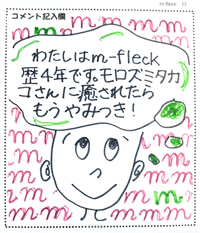 m-fleck 11
コメント記入欄
わたしはm-fleck
歴4年です。モロズミタカ
コさんに癒されたら
もうやみつき!
m m m m m m m